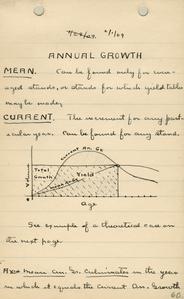 ANNUAL GROWTH
MEAN. Can be found only for even-
aged stands, or stands for which yield tables
may be made.
CURRENT. The increment for any part-
icular year. Can be found for any stand.
Current An. Gr.
Total
Growth
Yield
Mean An. Gr.
Volume
Age
See example of a theoretical case on
the next page.
Mean An. Gr. Culminates in the year
in which it equals the Current An. Growth